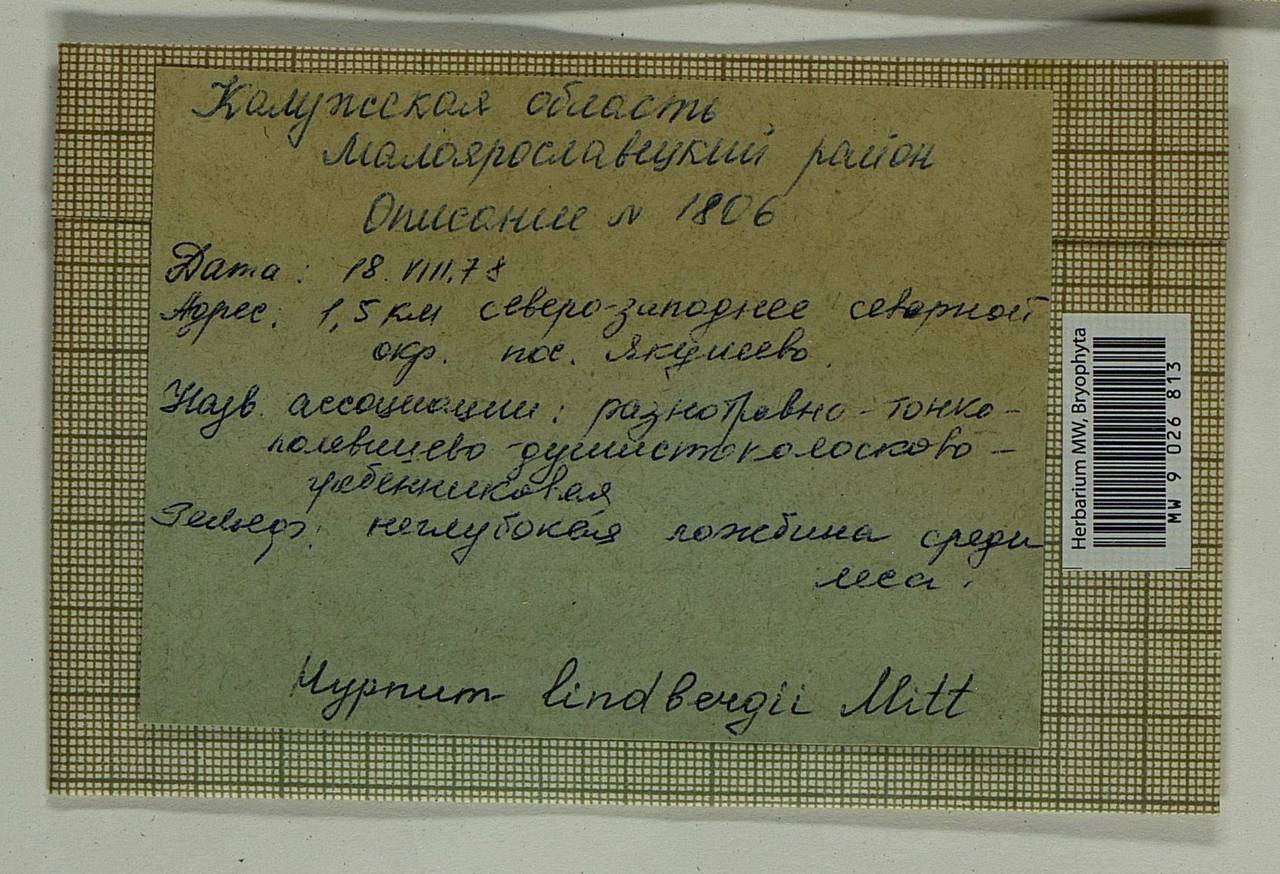 Калужская область
Малоярославецкий район
Описание № 1806
Дата: 18.VIII.78
Адрес: 1,5 км северо-западнее северной
окр. пос. Якушево.
Назв. ассоциации: разнотравно-тонко-
полевицево-душистоколосково-
гребенниковая
Рельеф: неглубокая ложбина среди
леса.
Hypnum lindbergii Mitt
Herbarium MW, Bryophyta
MW 9 026 813